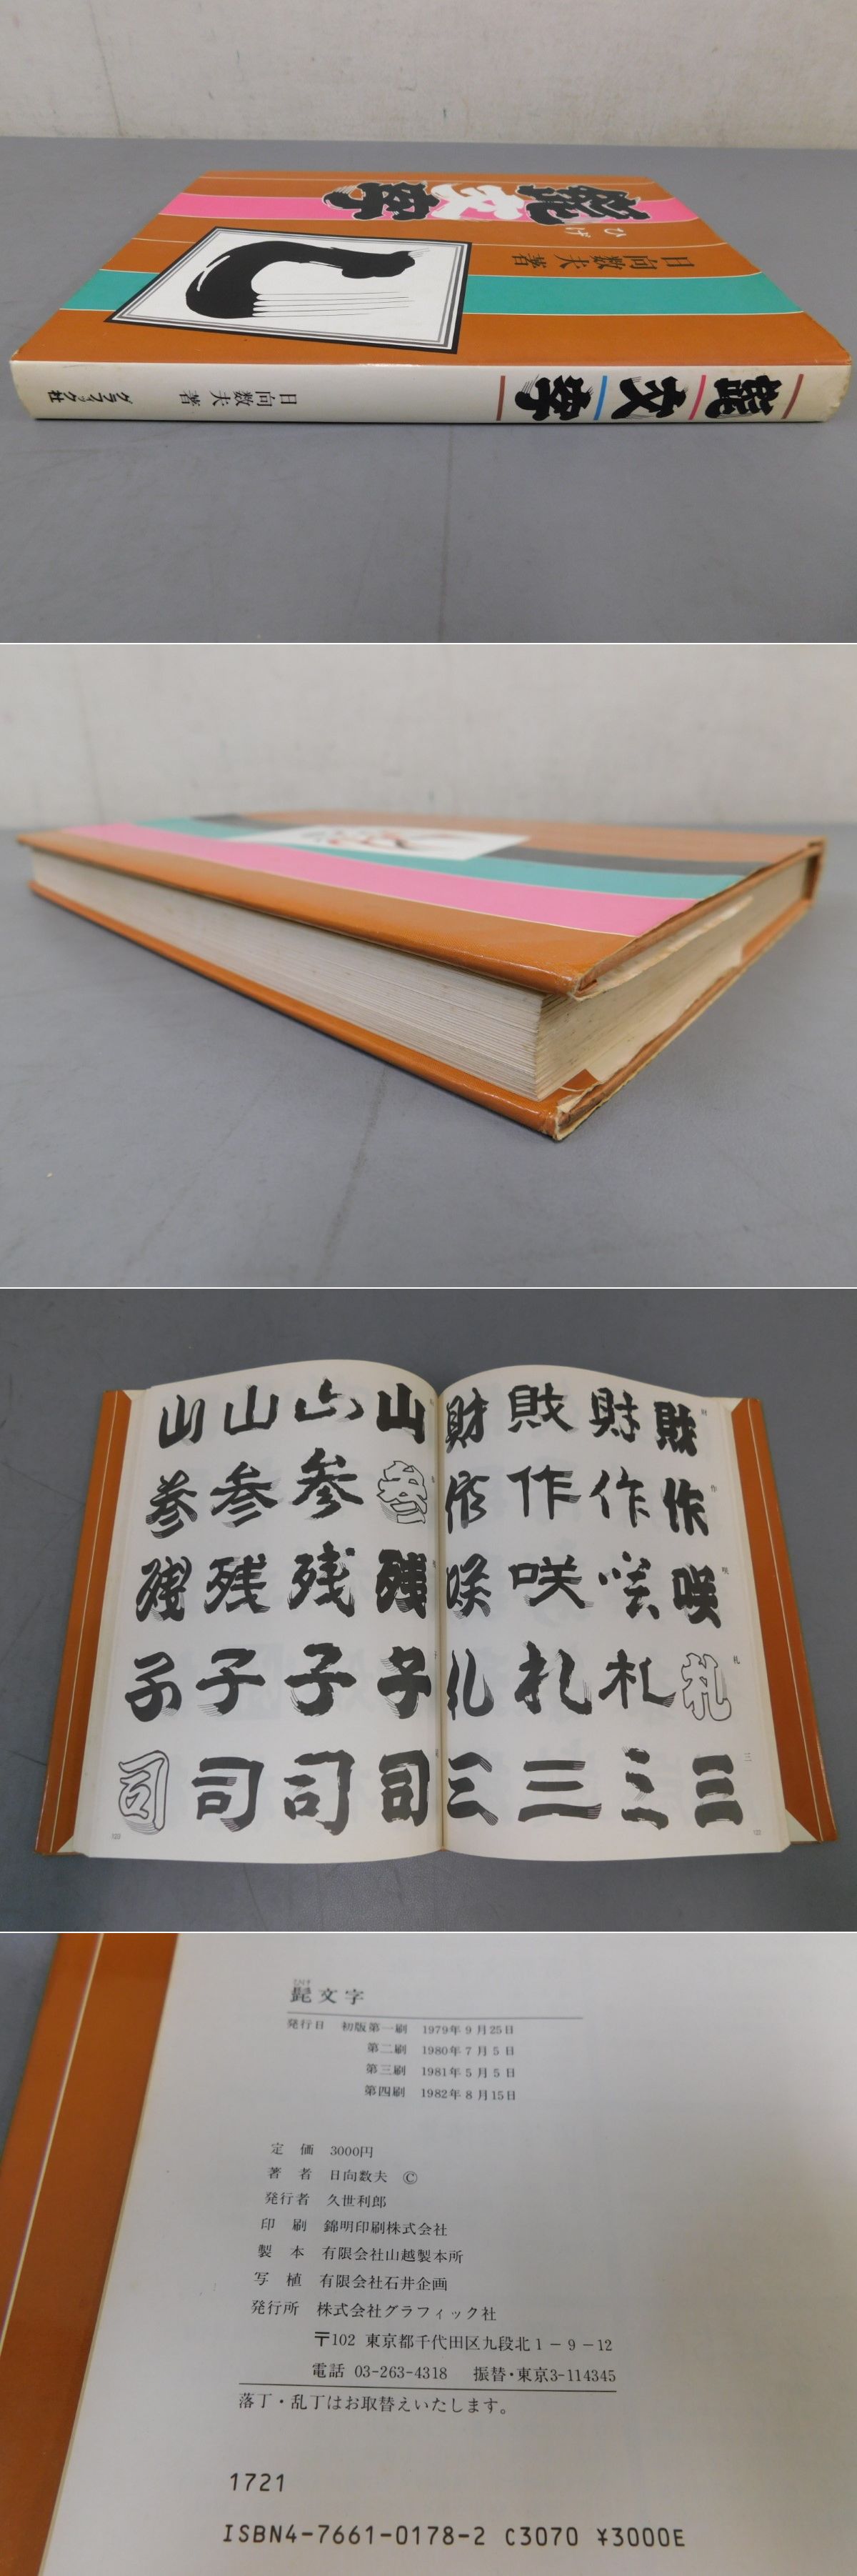 髭文字
ひげ
日向数夫 著
髭文字
日向数夫 著
グラフィック社
財 財 財 財 財
作 作 作 作 作
咲 咲 咲 咲 咲
札 札 札 札 札
三 三 三 三 三
山 山 山 山
参 参 参 参
残 残 残 残
子 子 子 子
司 司 司 司
ひげ
髭文字
発行日 初版第一刷 1979年9月25日
第二刷 1980年7月5日
第三刷 1981年5月5日
第四刷 1982年8月15日
定 価 3000円
著 者 日向数夫 ©
発行者 久世利郎
印 刷 錦明印刷株式会社
製 本 有限会社山越製本所
写 植 有限会社石井企画
発行所 株式会社グラフィック社
〒102 東京都千代田区九段北1－9－12
電話 03-263-4318 振替・東京3-114345
落丁・乱丁はお取替えいたします。
1721
ISBN4-7661-0178-2 C3070 ¥3000E